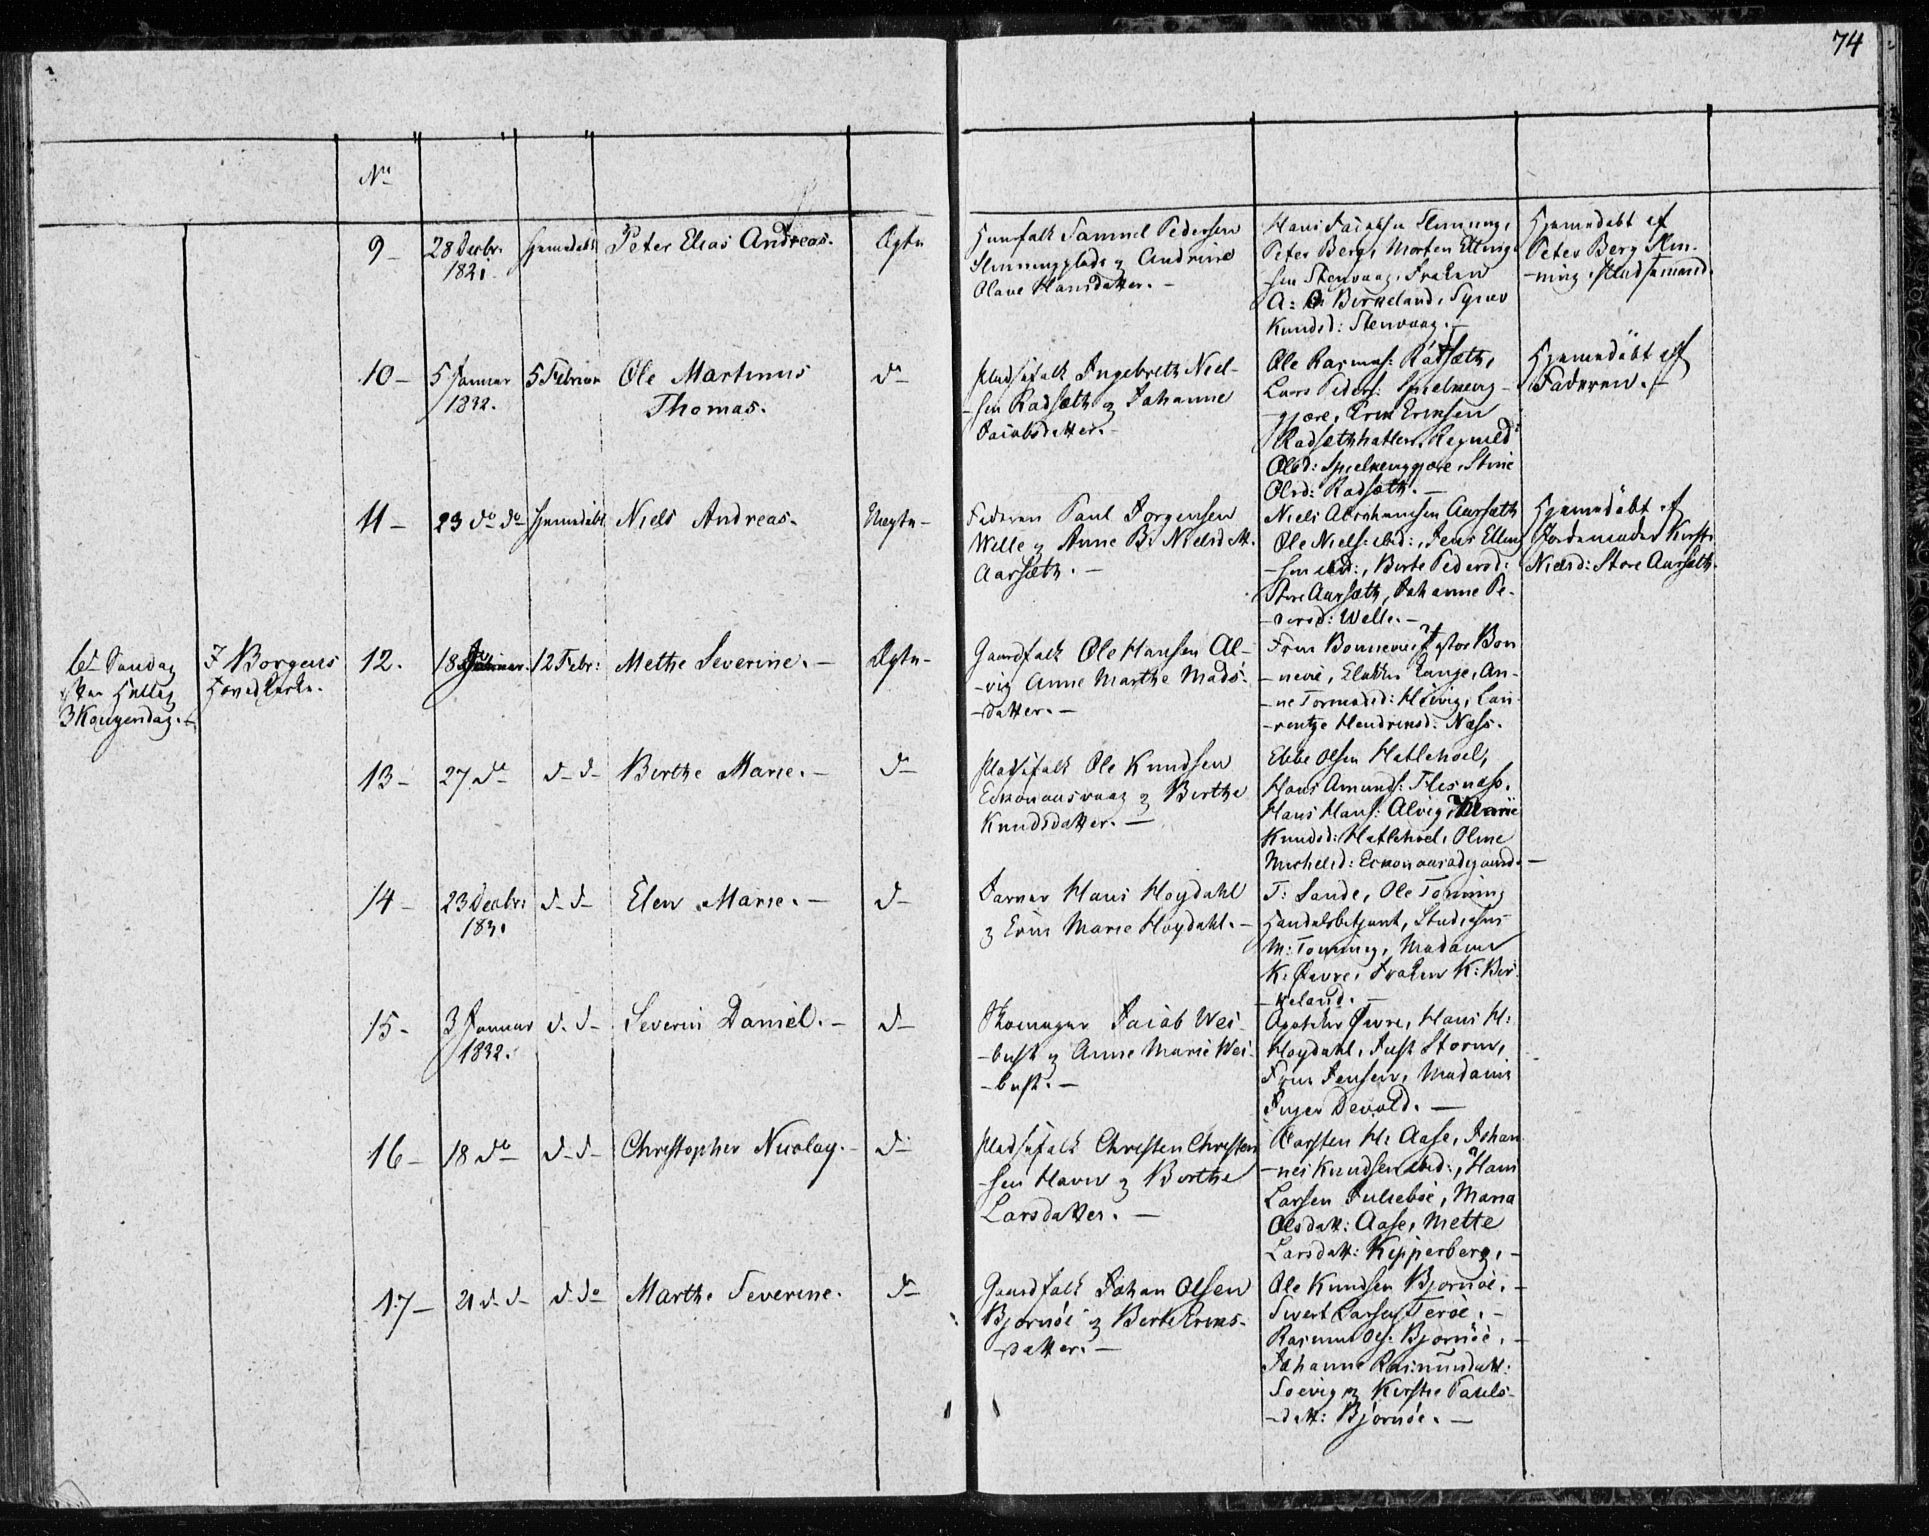 74
No
9 - 28 Decbr: hjemedøbt Peter Elias Andreas. Ægte
1831.
Huusfolk Samuel Pedersen
Slinningplads og Andrine
Olave Hansdatter. -
Hans Jacobsen Slinning,
Peter Berg, Morten Elling-
sen Stenvaag, Frøken
A: Birkeland, Synev
Knudsd: Stenvaag. -
Hjemedøbt af
Peter Berg Slin-
-ning Pladsemand.
10 - 5 Januar 5 Februar Ole Martinus do
1832. Thomas.
Pladsefolk Ingebreth Niel-
-sen Radsæth og Johanne
Jacobsdatter. -
Ole Rasmus: Radsæth,
Lars Peders: Spielkevig-
-gjære, Erik Eriksen
Radsæthhatlen, Ragnild
Olsd: Spielkeviggjære, Stine
Olsd: Radsæth. -
Hjemedøbt af
Faderen. -
11 - 23 do do hjemedøbt Niels Andreas. Uægte -
Faderen Paul Jørgensen
Welle og Anne B: Nielsdatt.
Aarsæth. -
Niels Abrahamsen Aarsæth
Ole Niels: ibid:, Jens Elling
-sen ibid:, Berte Pedersd:
Store Aarsæth, Johanne Pe-
-dersd: Welle. -
Hjemedøbt af
Jordemoder Kirsti
Nielsd: Store Aarsæth.
6te Søndag I Borgens 12. 18 12 Febr: Methe Severine. - Ægte -
efter Hellig Hovedkirke.
3 Kongersdag. -
Gaardfolk Ole Hansen Al-
-vig Anne Marthe Mads-
-datter. -
Frue Bonnevie, Pastor Bon
-nevie, Lange, An-
-ne Tormodsd: Høivig, Lau-
-rentze Hendriksd: Næss.
13 - 27 do d- d- Birthe Marie. - do
Pladsefolk Ole Knudsen
Eckonaasvaag og Birthe
Knudsdatter. -
Ebbe Olsen Hatlehoel,
Hans Amunds: Flisnæss.
Hans Hans: Alvig, Marie
Knudsd: Hatlehoel, Oline
Michelsd: -
14 - 23 Decbr: d- d- Elen Marie. - d-
1831
Farver Hans Høydahl
og Erik Marie Høydahl. -
T: Sande, Ole Tønning
Handelsbetjent, Studiosus
M: Tønning, Madame
K: Øwre, Frøken K: Bir-
-keland. -
15 - 3 Januar d- d- Severin Daniel. - d-
1832.
Skomager Jacob Wei-
-bust og Anne Marie Wei-
-bust. -
Apotheker Øwre, Hans H:
Høydahl, Just Storm,
Frue Jensen, Madame
Inger Devold. -
16 - 18 do d- d- Christopher Nicolay. - d-
Pladsefolk Christen Christen
-sen Havn og Berthe
Larsdatter. -
Karsten H: Aase, Johan-
-nes Knudsen ibid:, Hans
Larsen Juliebøe, Maria
Olsdatt: Aase, Mette
Larsdatt: Kipperberg. -
17 - 21 d- d- d- do Marthe Severine. do
Gaardfolk Johan Olsen
Bjørnøe og Berte Eriks-
-datter. -
Ole Knudsen Bjørnøe. -
Sivert Larsen Terøe. -
Rasmus Ols: Bjørnøe. -
Johanne Rasmusdatt:
Soevig og Kirstie Pauls-
-datt: Bjørnøe. -